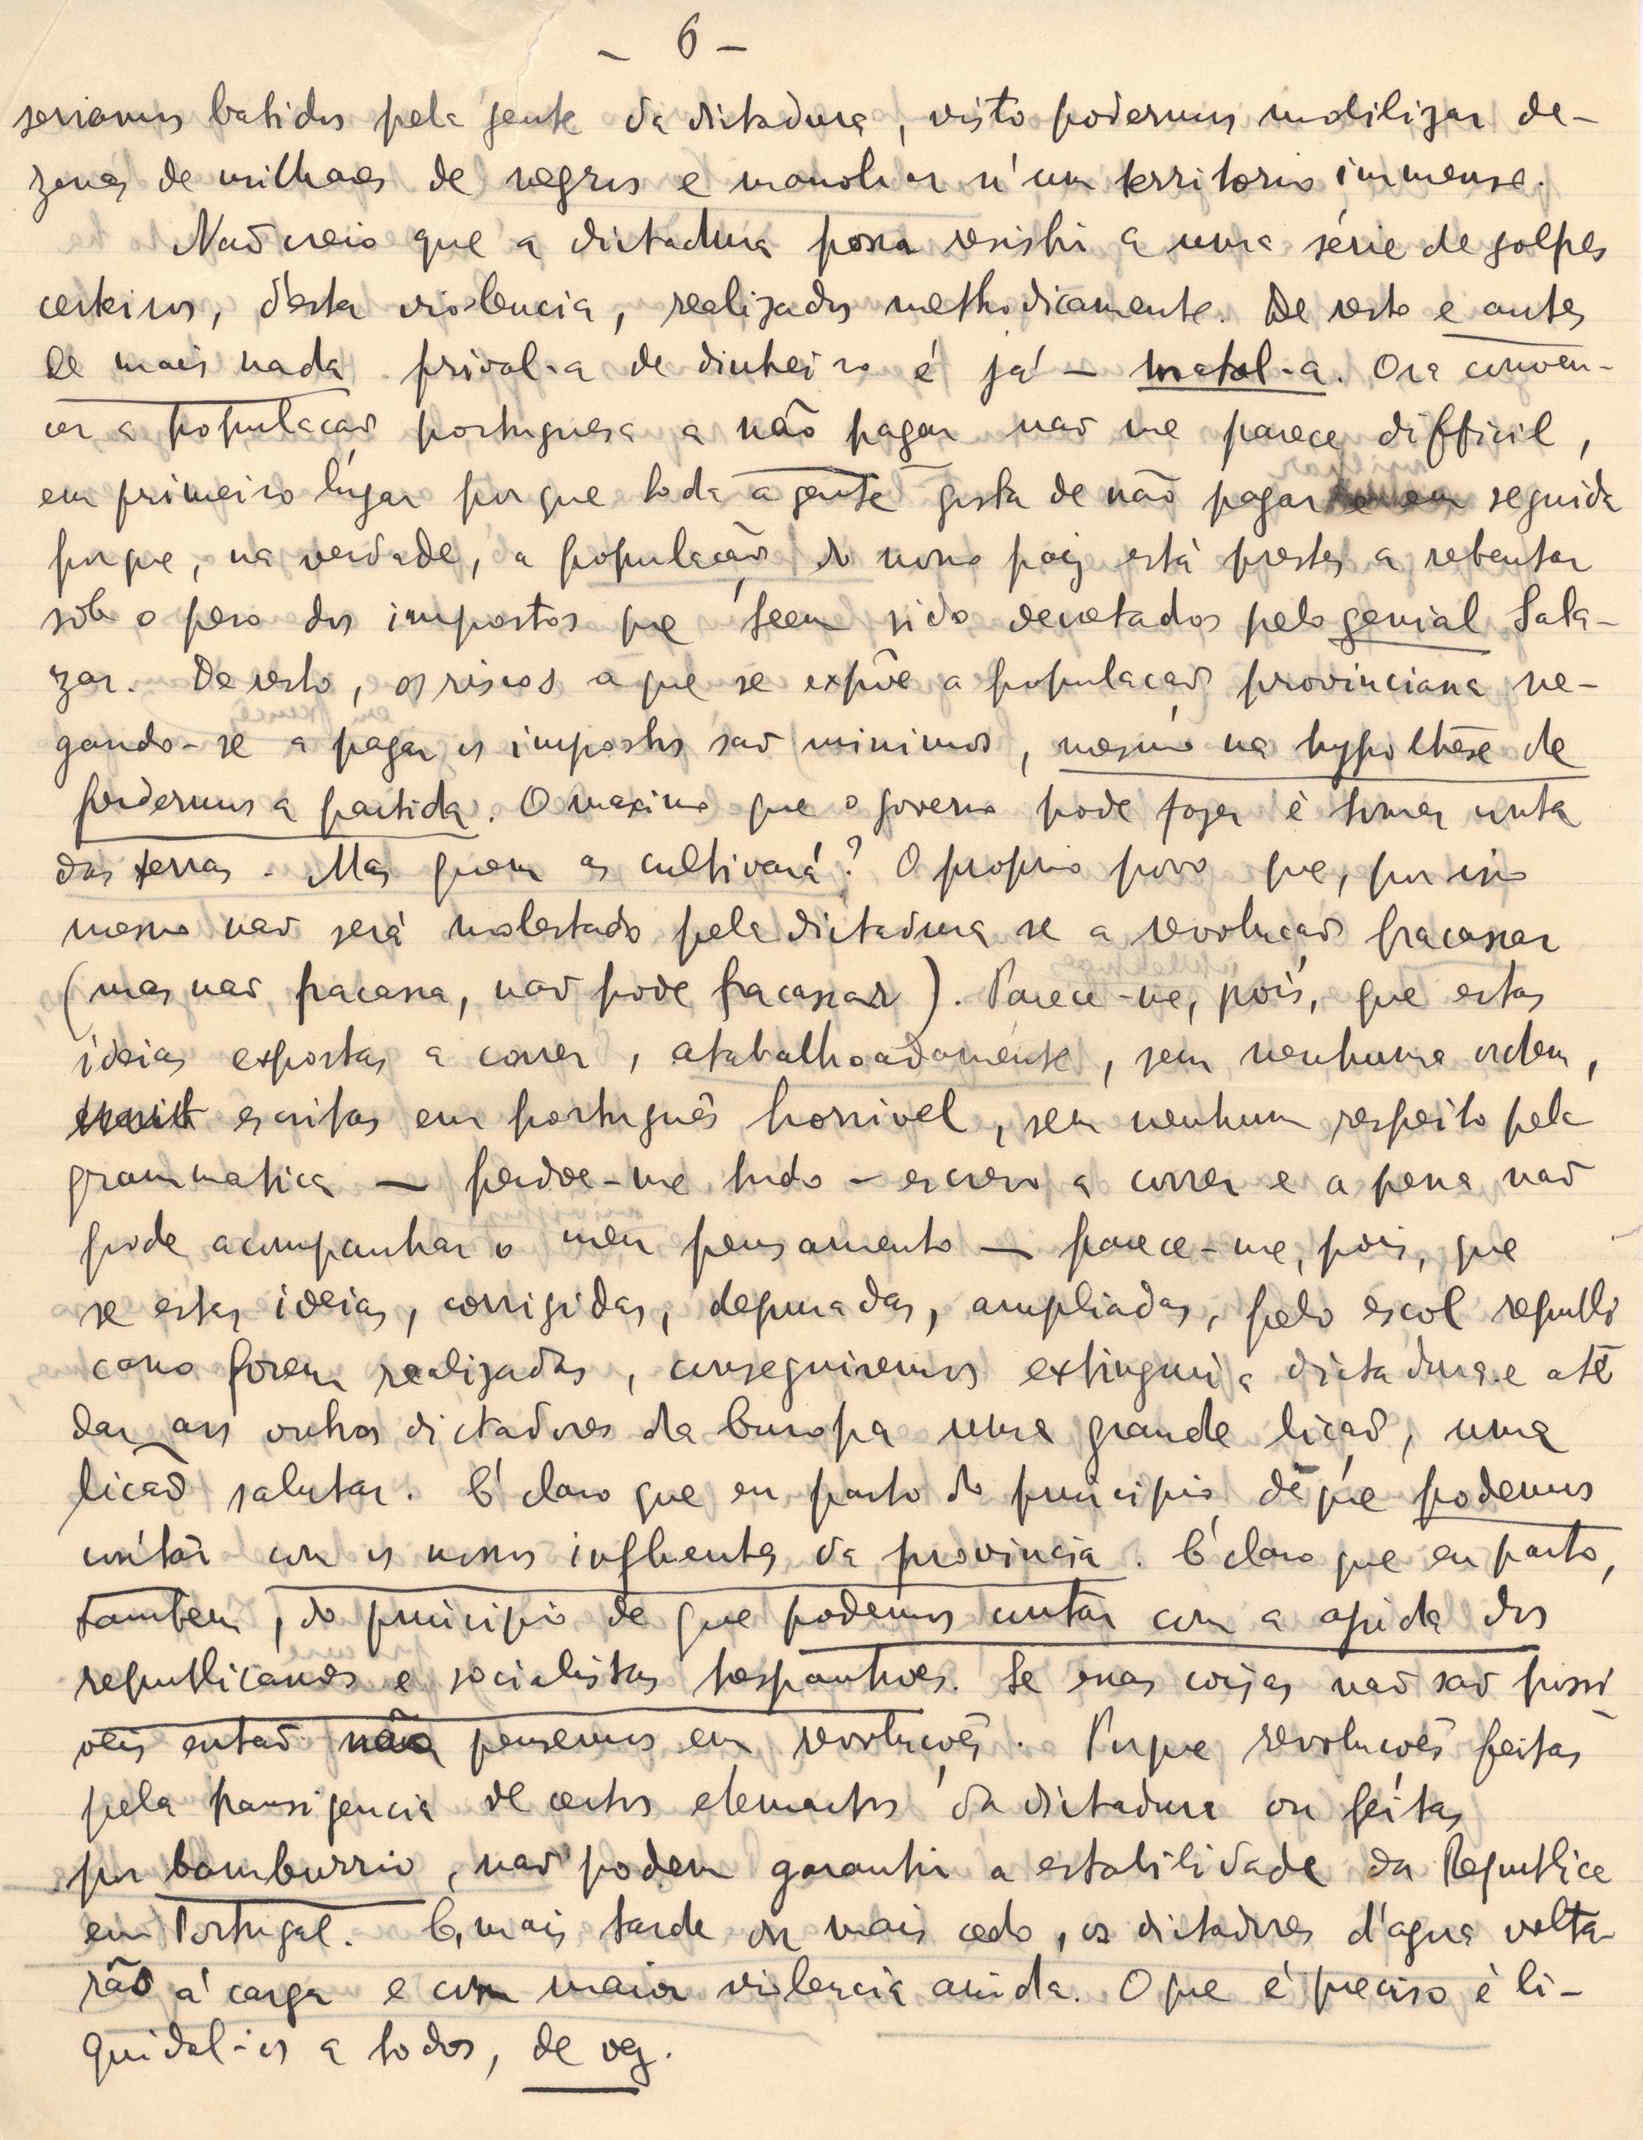 - 6 -
seriamos batidos pela gente da dictadura, visto podermos mobilizar de-
zenas de milhares de negros e manobrar n'um territorio immenso.
Não creio que a dictadura possa resistir a uma série de golpes
certeiros, d'esta violencia, realizados methodicamente. De resto e antes
de mais nada prival-a de dinheiro é já - matal-a. Ora conven-
cer a população portuguesa a não pagar não me parece difficil,
em primeiro lugar porque toda a gente gosta de não pagar e em seguida
porque, na verdade, a população do nosso paiz está prestes a rebentar
sob o peso dos impostos que teem sido decretados pelo genial Sala-
zar. De resto, os riscos a que se expõe a população provinciana ne-
gando-se a pagar os impostos são minimos, mesmo na hypothese de
perdermos a partida. O maximo que o governo pode fazer é tomar conta
das terras. Mas quem as cultivará? O proprio povo que, por isso
mesmo não será molestado pela dictadura se a revolução fracassar
(mas não fracassa, não pode fracassar). Parece-me, pois, que estas
ideias expostas a correr, atabalhoadamente, sem nenhuma ordem,
escritas em português horrivel, sem nenhum respeito pela
grammatica — perdoe-me tudo - escrevo a correr e a pena não
pode acompanhar o meu pensamento — parece-me, pois, que
se estas ideias, corrigidas, depuradas, ampliadas, pelo escol republi
cano forem realizadas, conseguiremos extinguir a dictadura e até
dar aos outros dictadores da Europa uma grande lição, uma
lição salutar. É claro que eu parto do principio de que podemos
contar com os nossos influentes da provincia. É claro que eu parto,
tambem, do principio de que podemos contar com a ajuda dos
republicanos e socialistas hespanhoes. Se essas coisas não são possi
veis então não pensemos em revoluções. Porque revoluções feitas
pela transigencia de certos elementos da dictadura ou feitas
por bamburrio, não podem garantir a estabilidade da Republica
em Portugal. E, mais tarde ou mais cedo, os dictadores d'agua volta-
rão á carga e com maior violencia ainda. O que é preciso é li-
quidal-os a todos, de vez.